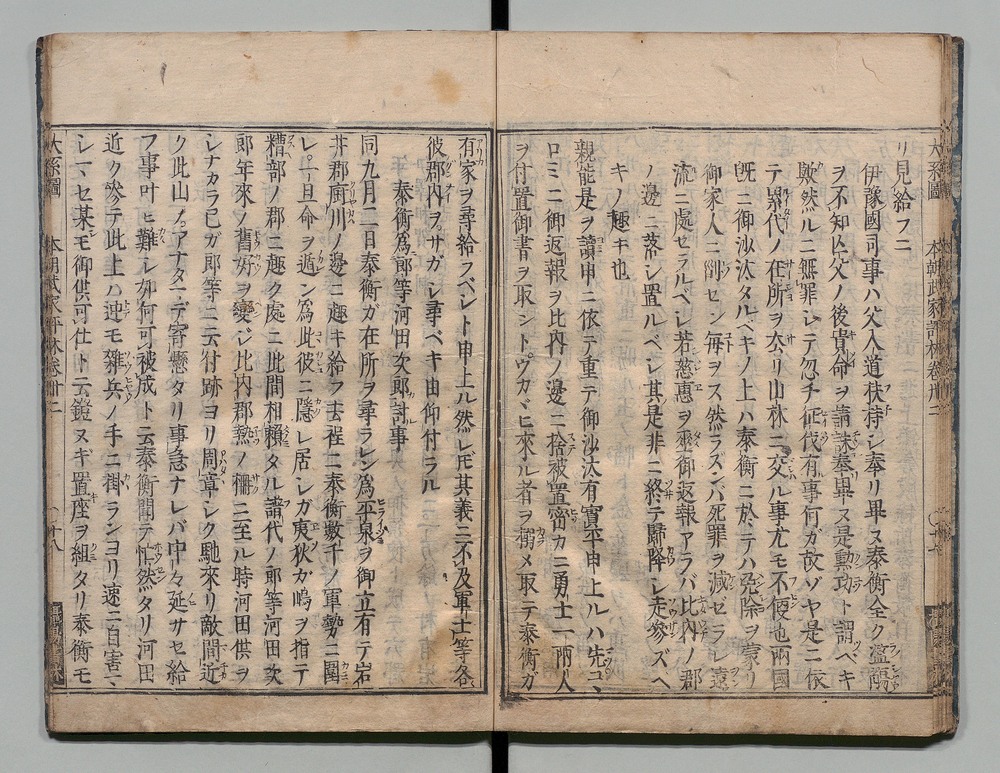 リ見給フニ
伊豫國司事ハ父入道扶持シ奉リ畢ヌ泰衡全ク濫觴
ヲ不知亡父ノ後貴命ヲ請誅奉畢ヌ是勲功ト謂ベキ
歟然ルニ無罪シテ忽チ征伐有事何ガ故ゾヤ是ニ依
テ累代ノ在所ヲ去リ山林ニ交ル事尤モ不便也両國
既ニ御沙汰タルベキノ上ハ泰衡ニ於テハ免除ヲ蒙リ
御家人ニ列セン毎ヲス然ラズンバ死罪ヲ減ゼラレ遠
流ニ處セラルベシ若慈惠ヲ垂御返報アラバ比内ノ郡
ノ邊ニ落シ置ルベシ其是非ニ終テ歸降シ走參ズベ
キノ趣キ也
親能是ヲ讀申ニ依テ重テ御沙汰有實平申上ルハ先コヽ
ロミニ御返報ヲ比内ノ邊ニ捨被置密カニ勇士一兩人
ヲ付置御書ヲ取ントウカヾヒ來ル者ヲ搦メ取テ泰衡ガ
有家ヲ尋給フベシト申上ル然レ𪜈其義ニ不及軍士等各
彼郡内ヲサガシ尋ベキ由仰付ラル
泰衡爲郎等河田次郎討事
同九月二日泰衡ガ在所ヲ尋ラレン爲平泉ヲ御立有テ岩
井郡廚川ノ邊ニ趣キ給フ去程ニ泰衡數千ノ軍勢ニ圍
レ一旦命ヲ遁ン爲此彼ニ隱レ居シガ夷狄ガ嶋ヲ指テ
糟部ノ郡ニ趣ク處ニ此間相賴タル譜代ノ郎等河田次
郎年來ノ舊好ヲ變ジ比内郡熱ノ柵ニ至ル時河田供ヲ
シナカラ己ガ郎等ニ云付跡ヨリ周章シク馳來リ敵間近
ク此山ノアナタマデ寄懸タリ事急ナレバ中々延サセ給
フ事叶ヒ難シ如何可被成ト云泰衡聞テ惘然タリ河田
近ク參テ此上ハ迚モ雜兵ノ手ニ掛ランヨリ速ニ自害マ
シマセ某モ御供可仕ト云鎧ヌギ置座ヲ組タリ泰衡モ
大系圖
本朝武家評林卷卅二
十八